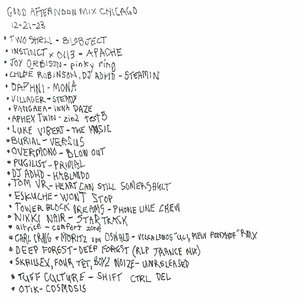 GOOD AFTERNOON MIX CHICAGO
12-21-23
• TWO SHELL - BLOBJECT
• INSTINCT x 0113 - APACHE
• JOY ORBISON - pinky ring
• CHLOÉ ROBINSON, DJ ADHD - STEAMIN
• DAPHNI - MONA
• VILLAGER - STEADY
• PANGAEA - INNA DAZE
• APHEX TWIN - zin2 test5
• LUKE VIBERT - THE MUSIC
• BURIAL - VERSUS
• OVERMONO - BLOW OUT
• PUGILIST - PRIMAL
• DJ ADHD - HABLANDO
• TOM VR - HEART CAN STILL SOMERSAULT
• ESKUCHE - WON'T STOP
• TOWER BLOCK DREAMS - PHONE LINE CREW
• NIKKI NAIR - STARTRAK
• altrice - comfort zone
• CARL CRAIG + MORITZ VON OSWALD - VILLALOBOS RMX
• DEEP FOREST - DEEP FOREST (RLP TRANCE MIX)
• SKRILLEX, FOUR TET, BOYS NOIZE - UNRELEASED
• TUFF CULTURE - SHIFT CTRL DEL
• OTIK - COSMOSIS